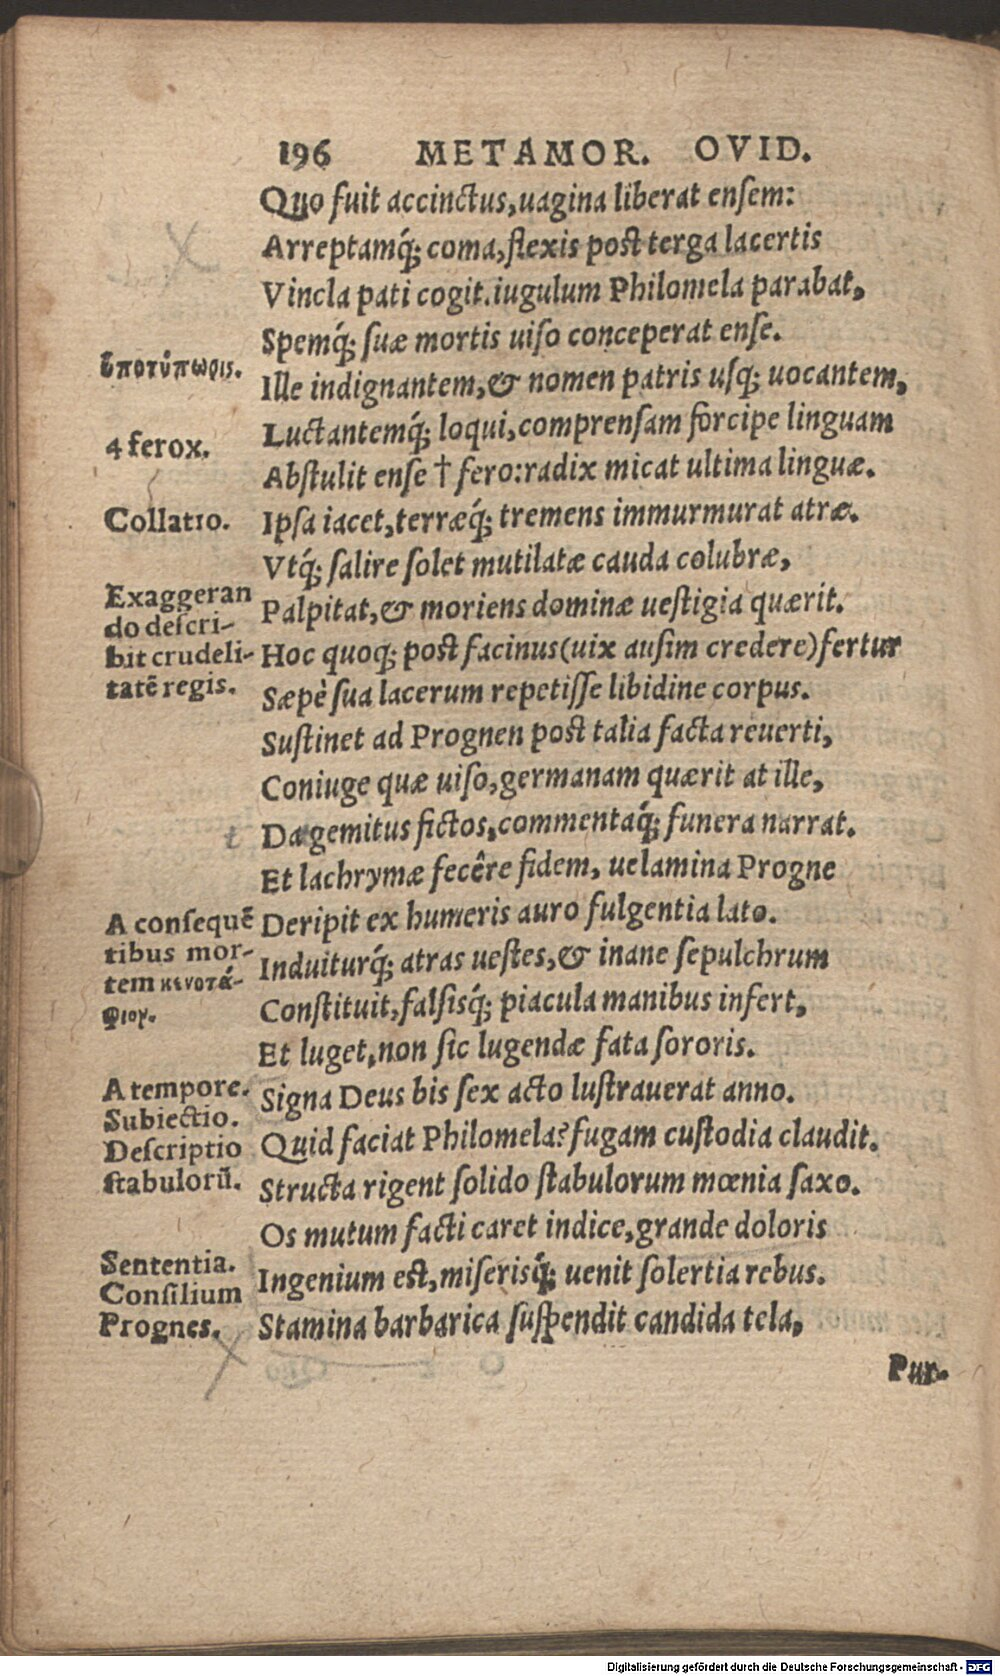 196 METAMOR. OVID.
Quo fuit accinctus, uagina liberat ensem:
Arreptamq́; coma, flexis post terga lacertis
Vincla pati cogit. iugulum Philomela parabat,
Spemq́; suæ mortis uiso conceperat ense.
ὑποτύπωσις.
Ille indignantem, & nomen patris usq; uocantem,
4 ferox.
Luctantemq́; loqui, comprensam forcipe linguam
Abstulit ense † fero: radix micat ultima linguæ.
Collatio.
Ipsa iacet, terræq́; tremens immurmurat atræ.
Vtq́; salire solet mutilatæ cauda colubræ,
Exaggeran
do descri-
bit crudeli-
tatē regis.
Palpitat, & moriens dominæ uestigia quærit.
Hoc quoq; post facinus (uix ausim credere) fertur
Sæpè sua lacerum repetisse libidine corpus.
Sustinet ad Prognen post talia facta reuerti,
Coniuge quæ uiso, germanam quærit at ille,
t
Dagemitus fictos, commentaq́; funera narrat.
Et lachrymæ fecêre fidem, uelamina Progne
A consequē
tibus mor-
tem κενοτά-
φιον.
Deripit ex humeris auro fulgentia lato.
Induiturq́; atras uestes, & inane sepulchrum
Constituit, falsisq́; piacula manibus infert,
Et luget, non sic lugendæ fata sororis.
A tempore.
Subiectio.
Descriptio
stabulorū.
Signa Deus bis sex acto lustrauerat anno.
Quid faciat Philomela? fugam custodia claudit.
Structa rigent solido stabulorum mœnia saxo.
Os mutum facti caret indice, grande doloris
Sententia.
Consilium
Prognes.
Ingenium est, miserisq́; uenit solertia rebus.
Stamina barbarica suspendit candida tela,
Pur-
Digitalisierung gefördert durch die Deutsche Forschungsgemeinschaft - DFG